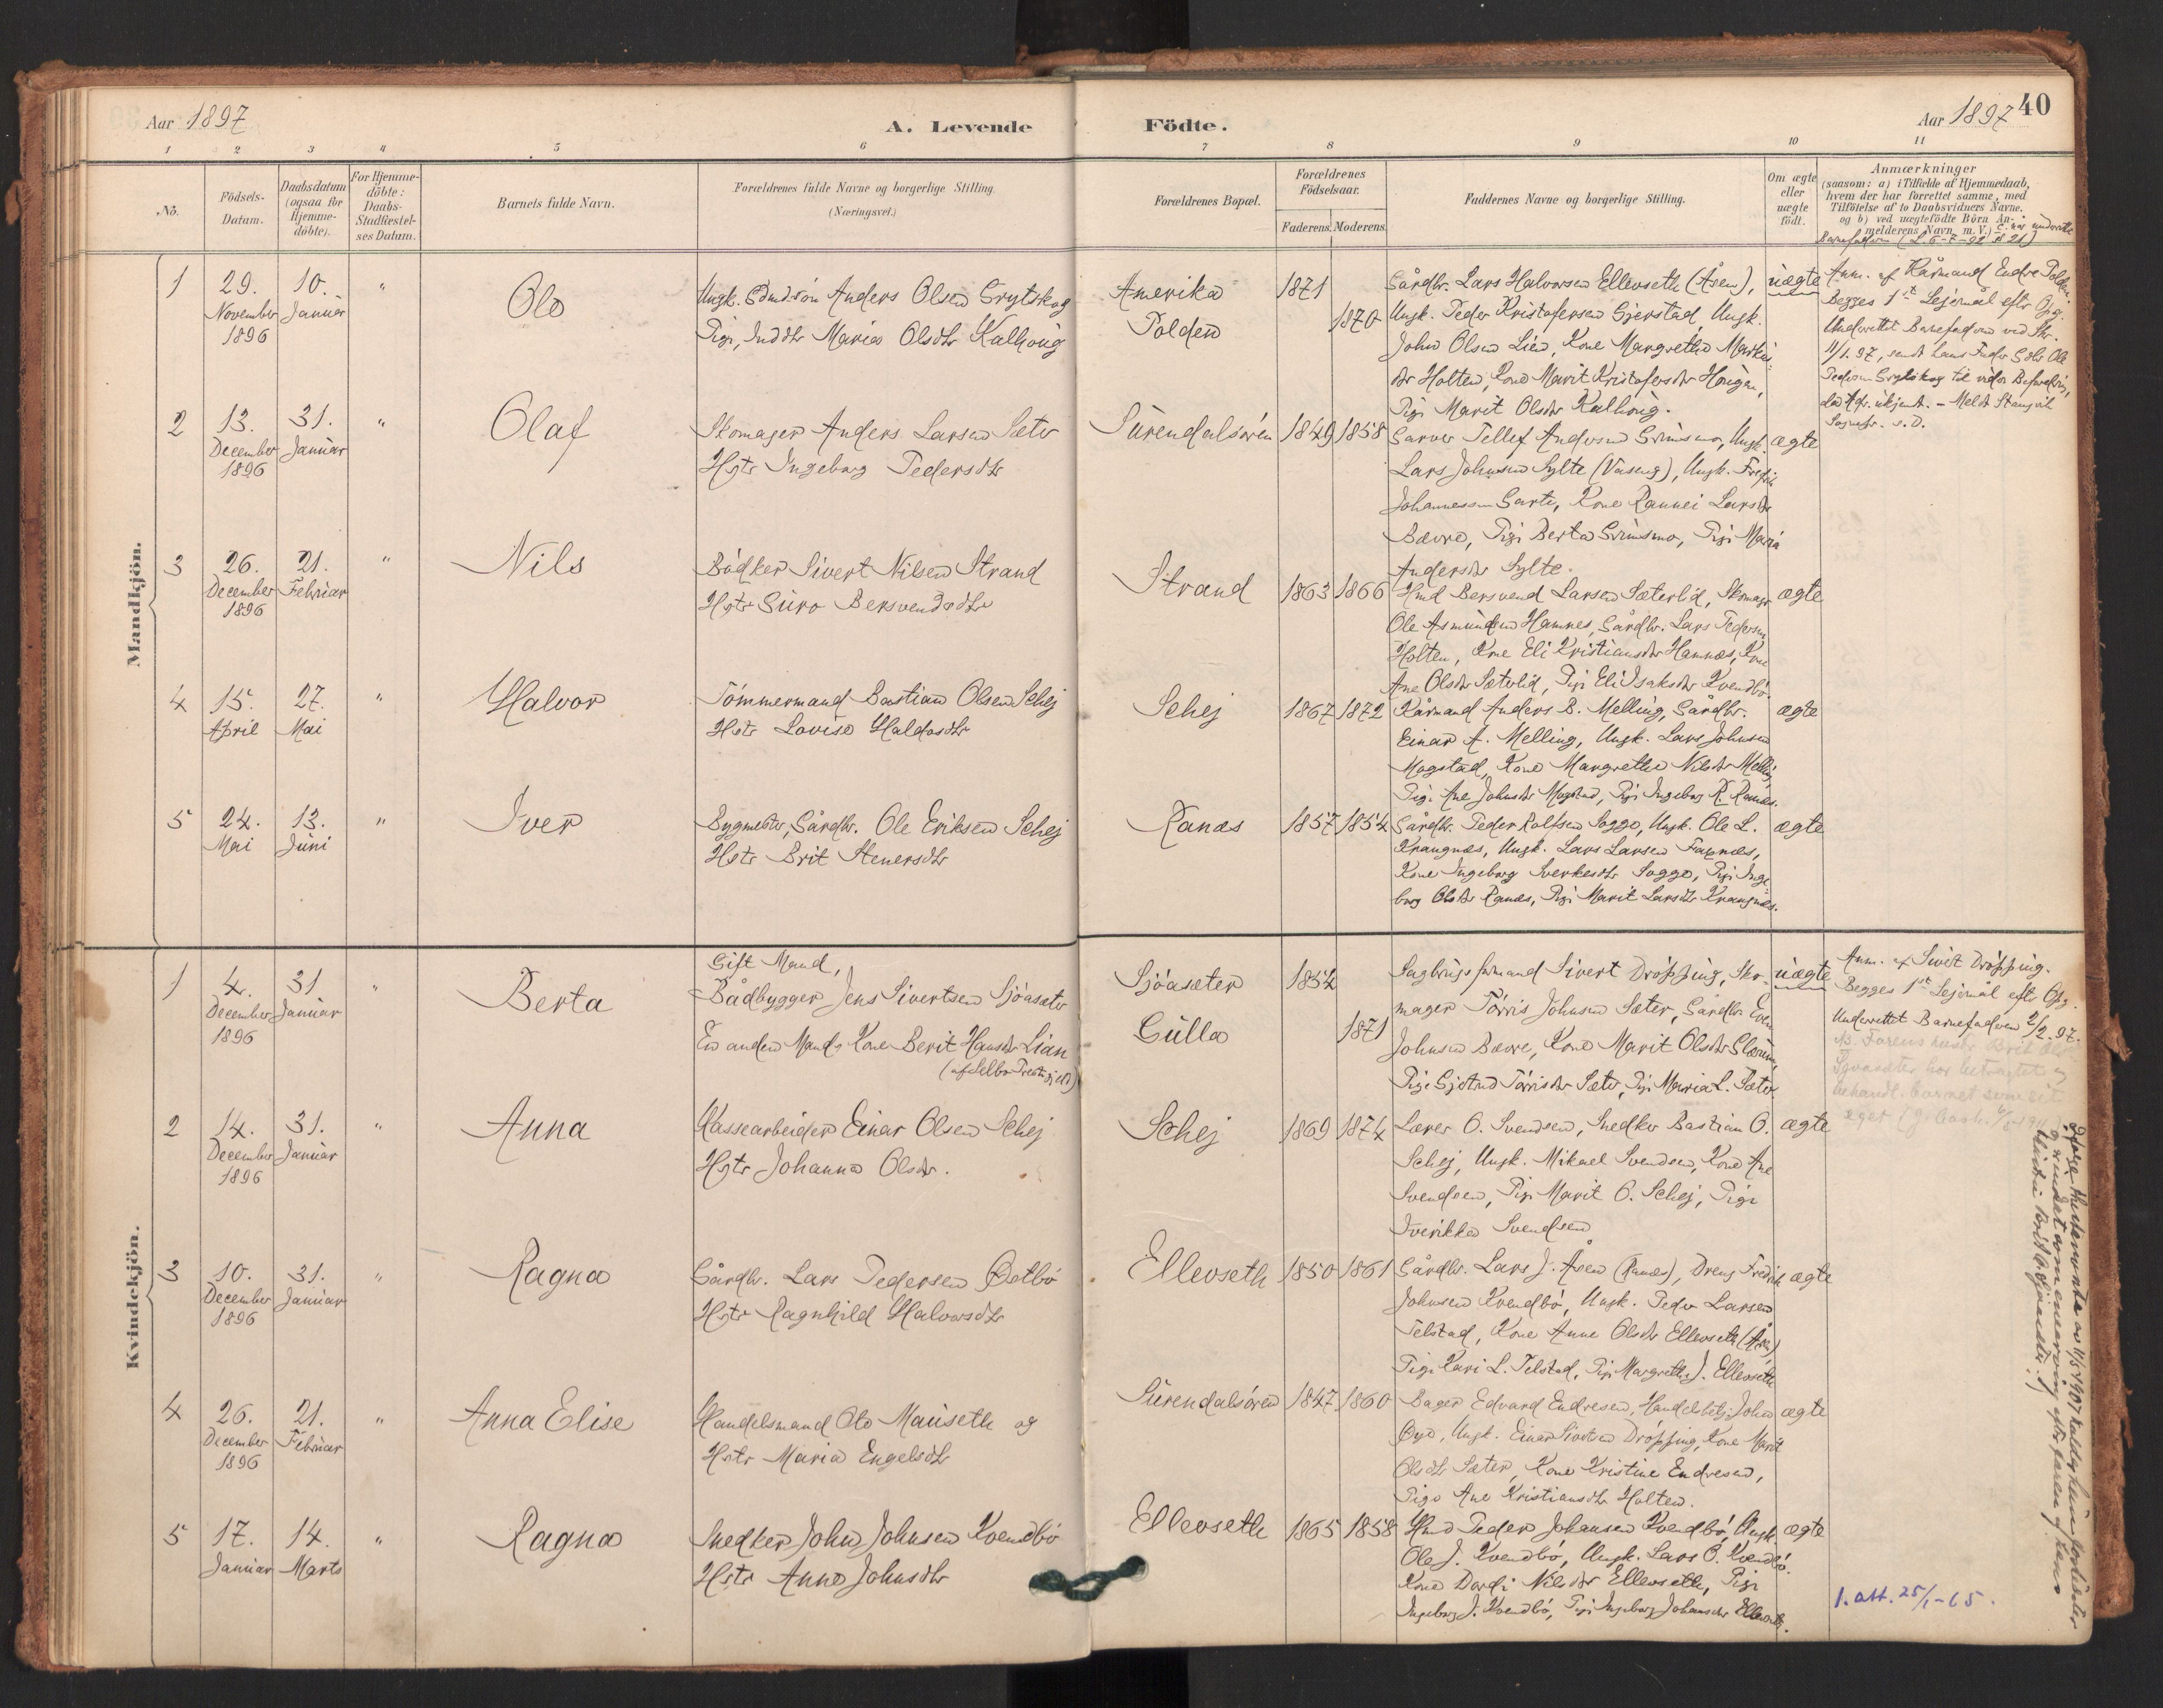 Aar 1897
A. Levende
Födte.
Aar 1897
40
1 2 3 4 5 6 7 8 9 10 11
No.
Födsels-Datum.
Daabsdatum (ogsaa for Hjemme-döbte).
For Hjemme-döbte: Daabs-Stadfæstel-ses Datum.
Barnets fulde Navn.
Forældrenes fulde Navne og borgerlige Stilling.
(Næringsvei.)
Forældrenes Bopæl.
Forældrenes Födselsaar.
Faderens. Moderens.
Faddernes Navne og borgerlige Stilling.
Om ægte eller uægte födt.
Anmærkninger
(saasom: a) i Tilfælde af Hjemmedaab,
hvem der har forrettet samme, med
Tilföielse af to Daabsvidners Navne.
og b) ved uægtefödte Börn An-
melderens Navn m. V.)
Mandkjön.
1
29. November 1896
10. Januar
"
Ole
Ungk. Gdmdsön Anders Olsen Grytskog
Pige, Inddtr Marie Olsdtr Kalhoug
Amerika
Polden
1871
1870
Gårdbr. Lars Halvorsen Ellevseth (Åsen),
Ungk. Peder Kristofersen Gjerstad, Ungk.
John Olsen Lien, Kone Margrethe Martin-
dtr Holten, Kone Marit Kristofersdtr Hougen,
Pige Marit Olsdtr Kalhoug.
uægte
Anm. af Kårmand Endre Polden.
Begges 1st Lejermål eftr Opg.
Underrettet Barnefaderen ved Skr.
11/1. 97, sendt hans Fader Gdbr Ole
Pedersen Grytskog til videre Befordring,
da Adr. ukjent. - Meldt Stangvik
Sognepr. s. D.
2
13. December 1896
31. Januar
"
Olaf
Skomager Anders Larsen Sæter
Hstr Ingeborg Pedersdtr
Surendalsören
1849 1858
Garver Tellef Andersen Grimsmo, Ungk.
Lars Johnsen Sylte (Vaseng), Ungk. Fredrik
Johannessen Garte, Kone Rannei Larsdtr
Bævre, Pige Berta Grimsmo, Pige Maria
Andersdtr Sylte.
ægte
3
26. December 1896
21. Februar
"
Nils
Bödker Sivert Nilsen Strand
Hstr Guro Bersvendsdtr
Strand
1863 1866
Hmd Bersvend Larsen Sæterlid, Skomager
Ole Asmundsen Hamnes, Gårdbr. Lars Pedersen
Holten, Kone Eli Kristiansdtr Hamnæs, Kone
Ane Olsdtr Sæterlid, Pige Eli Isaksdtr Kvendbö.
ægte
4
15. April
27. Mai
"
Halvor
Tömmermand Bastian Olsen Schej
Hstr Lovise Haldosdtr
Schej
1867 1872
Kårmand Anders B. Melling, Gårdbr.
Einar A. Melling, Ungk. Lars Johnsen
Mogstad, Kone Margrethe Nilsdtr Melling,
Pige Ane Johnsdtr Mogstad, Pige Ingeborg R. Ranæs.
ægte
5
24. Mai
13. Juni
"
Iver
Bygmester, Gårdbr. Ole Eriksen Schej
Hstr Brit Stenersdtr
Ranæs
1857 1854
Gårdbr. Peder Rolfsen Sogge, Ungk. Ole L.
Krangnæs, Ungk. Lars Larsen Faxnæs,
Kone Ingeborg Sverkesdtr Sogge, Pige Inge-
borg Olsdtr Ranæs, Pige Marit Larsdtr Krangnæs.
ægte
Kvindekjön.
1
4. December 1896
31 Januar
"
Berta
Gift Mand,
Bådbygger Jens Sivertsen Sjöasæter
En anden Mands Kone Berit Hansdtr Lian
(af Selbo Prestegjeld)
Sjöasæter
Gulla
1854
1871
Sagbrugsformand Sivert Dröpping, Sko-
mager Törris Johnsen Sæter, Gårdbr. Even
Johnsen Bævre, Kone Marit Olsdtr Glærum,
Pige Gjertrud Törrisdtr Sæter, Pige Maria L. Sæter.
uægte
Anm. af Sivert Dröpping.
Begges 1st Lejermål eftr Opg.
Underrettet Barnefaderen 2/2. 97.
2
14. December 1896
31. Januar
"
Anna
Kassearbeider Einar Olsen Schej
Hstr Johanna Olsdtr.
Schej
1869 1874
Lærer O. Svendsen, Snedker Bastian O.
Schej, Ungk. Mikael Svendsen, Kone Ane
Svendsen, Pige Marit O. Schej, Pige
Fredrikke Svendsen
ægte
3
10. December 1896
31. Januar
"
Ragna
Gårdbr. Lars Pedersen Östbö
Hstr Ragnhild Halvorsdtr
Ellevseth
1850 1861
Gårdbr. Lars J. Åsen (Ranæs), Dreng Fredrik
Johnsen Kvendbö, Ungk. Peder Larsen
Telstad, Kone Anne Olsdtr Ellevseth (Åsen)
Pige Kari L. Telstad, Pige Margrethe J. Ellevseth
ægte
4
26. December 1896
21. Februar
"
Anna Elise
Handelsmand Ole Mauseth og
Hstr Maria Engelsdtr
Surendalsören
1847 1860
Bager Edvard Endresen, Handelsbetj. John
Öye, Ungk. Einar Sivertsen Dröpping, Kone Marit
Olsdtr Sæter, Kone Kristine Endresen,
Pige Ane Kristiansdtr Holten.
ægte
5
17. Januar
14. Marts
"
Ragna
Snedker John Johnsen Kvendbö
Hstr Anne Johnsdtr
Ellevseth
1865 1858
Hmd Peder Johansen Kvendbö, Ungk.
Ole J. Kvendbö, Ungk. Lars O. Kvendbö.
Kone Dordi Nilsdtr Ellevseth, Pige
Ingeborg J. Kvendbö, Pige Ingeborg Johansdtr Ellevseth.
ægte
1. att. 25/1-65.